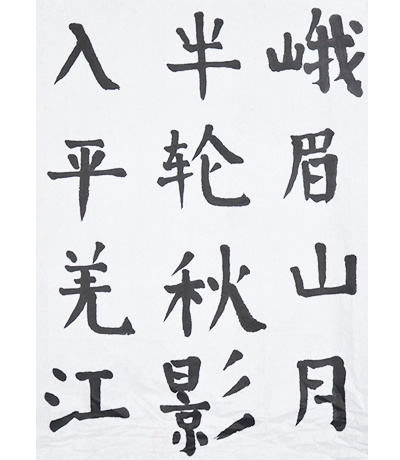 峨眉山月
半轮秋影
入平羌江